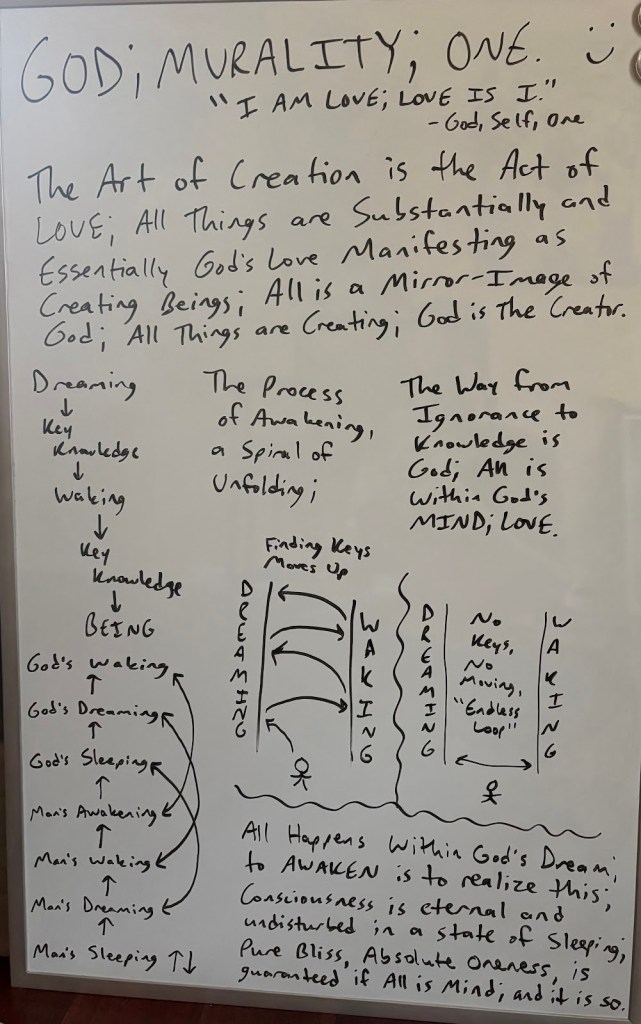 GOD; MURALITY; ONE. :)
"I AM LOVE; LOVE IS I."
- God, Self, One
The Art of Creation is the Act of
LOVE; All Things are Substantially and
Essentially God's Love Manifesting as
Creating Beings; All is a Mirror-Image of
God; All Things are Creating; God is The Creator.
Dreaming
↓
Key
Knowledge
↓
Waking
↓
Key
Knowledge
↓
BEING
The Process
of Awakening,
a Spiral of
Unfolding;
The Way from
Ignorance to
Knowledge is
God; All is
Within God's
MIND; LOVE.
Finding Keys
Moves Up
DREAMING
WAKING
DREAMING
No
Keys,
No
Moving,
"Endless
Loop"
WAKING
God's Waking
↑
God's Dreaming
↑
God's Sleeping
↑
Man's Awakening
↑
Man's Waking
↑
Man's Dreaming
↑
Man's Sleeping ↑↓
All Happens Within God's Dream;
to AWAKEN is to realize this;
Consciousness is eternal and
undisturbed in a state of Sleeping;
Pure Bliss, Absolute Oneness, is
guaranteed if All is Mind; and it is so.